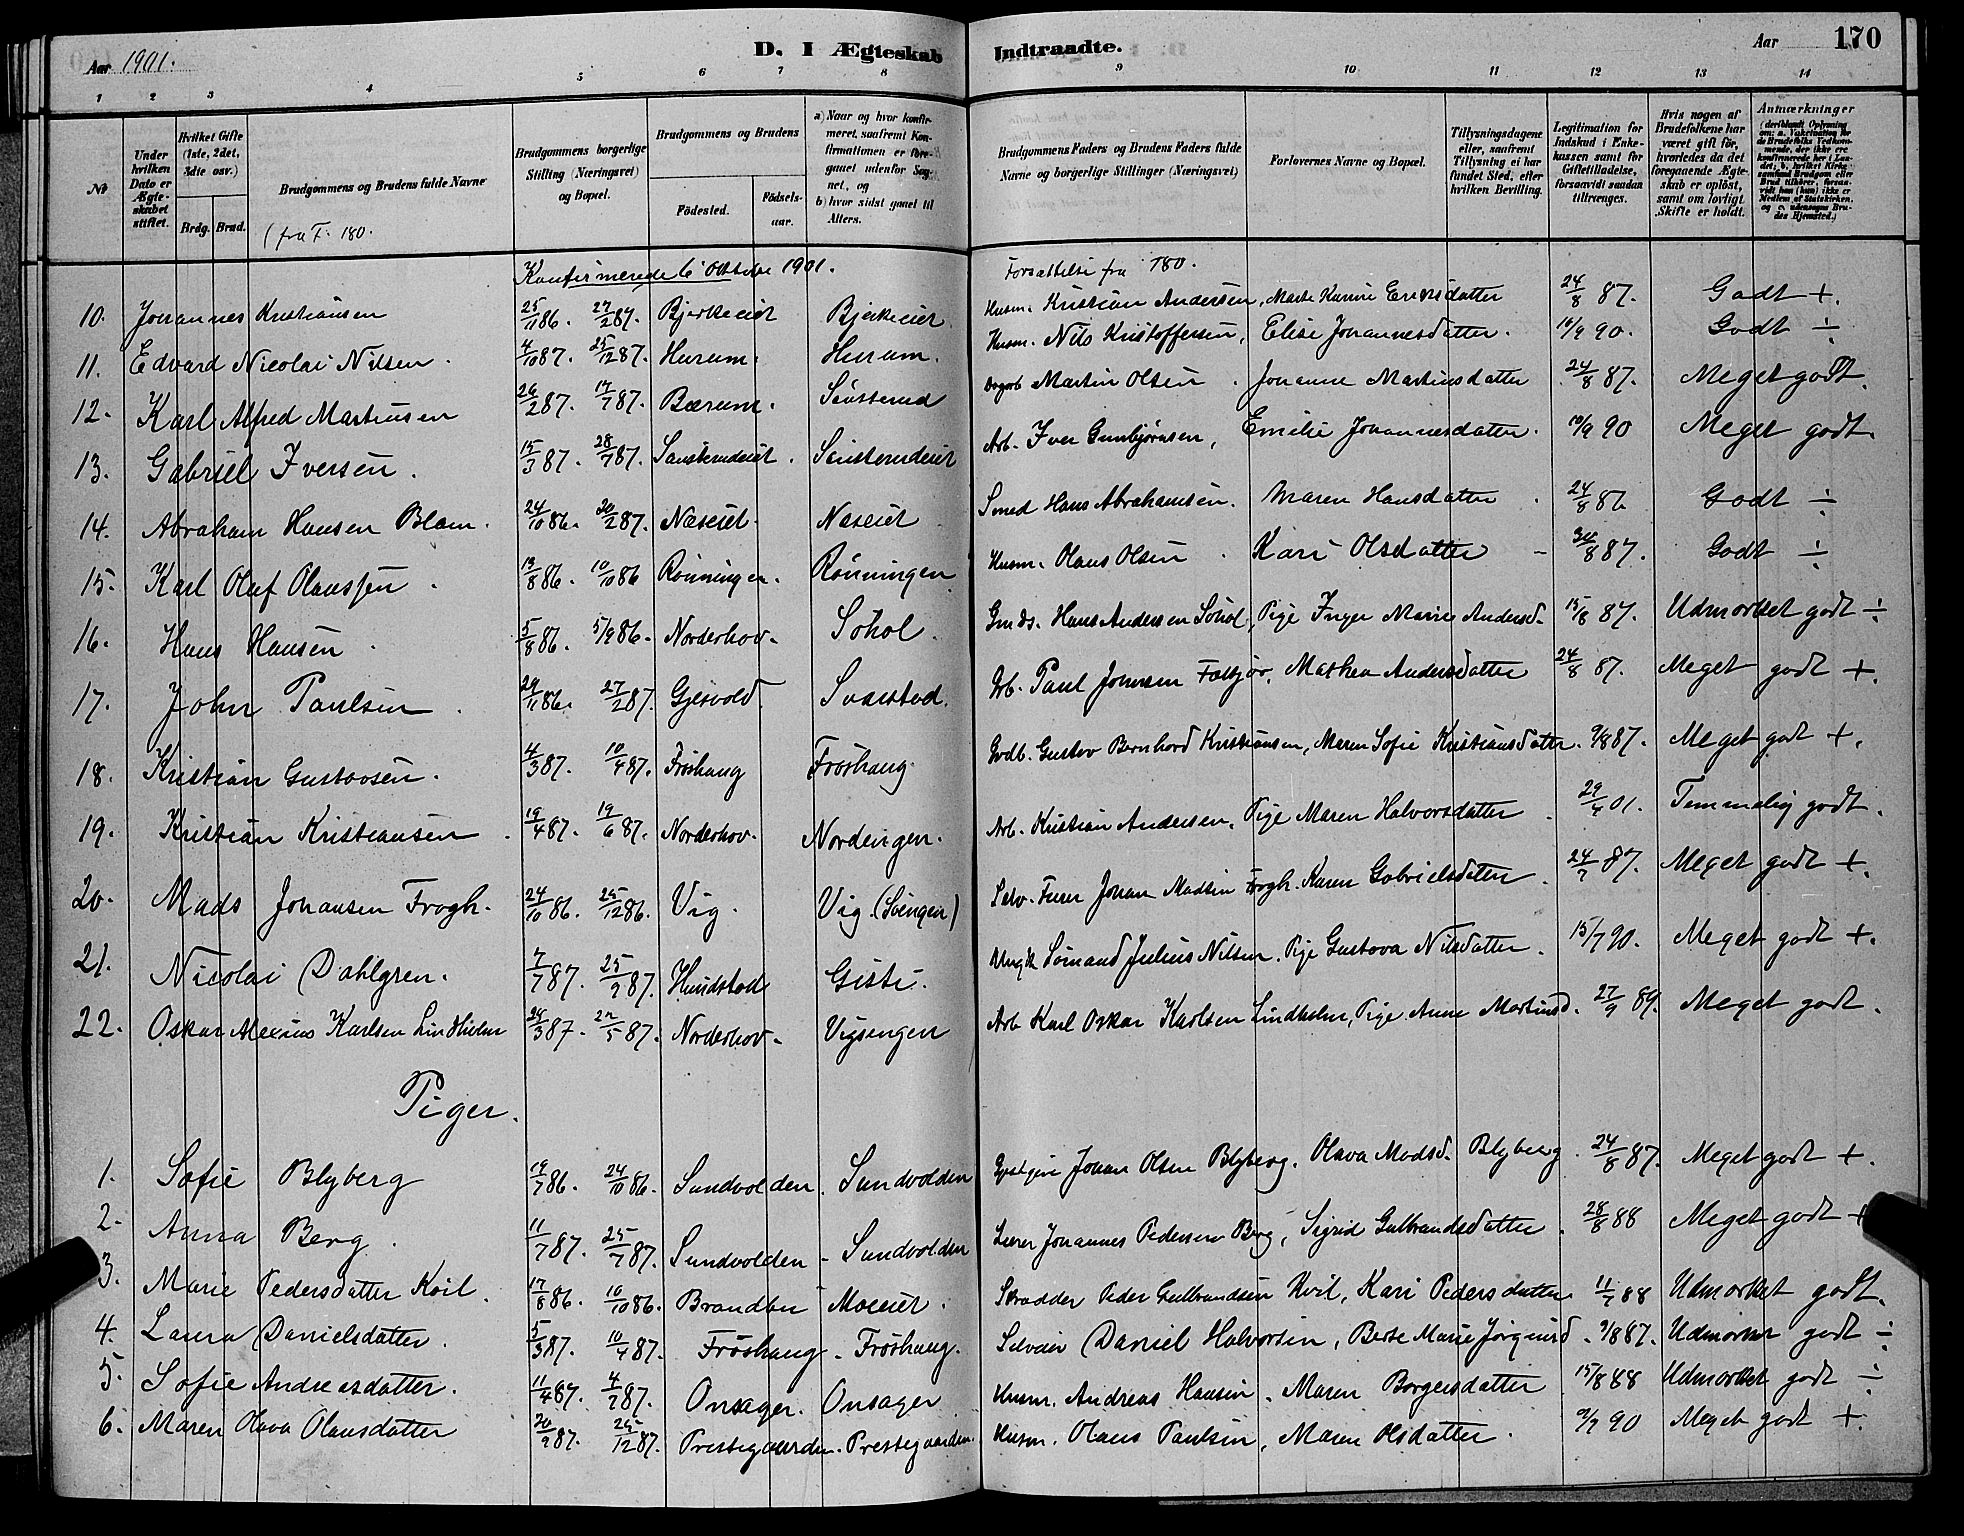 Aar 1901.
D. I Ægteskab Indtraadte.
Aar 170
1 2 3 4 5 6 7 8 9 10 11 12 13 14
№
Under hvilken Dato er Ægteskabet stiftet.
Hvilket Gifte (1ste, 2det, 3die osv.)
Brdg. Brud.
Brudgommens og Brudens fulde Navne
(fra F. 180.
Brudgommens borgerlige Stilling (Næringsvei) og Bopæl.
Brudgommens og Brudens
Födested.
Födselsaar.
a) Naar og hvor konfirmeret, saafremt Konfirmationen er foregaaet udenfor Sognet, og
b) hvor sidst gaaet til Alters.
Brudgommens Faders og Brudens Faders fulde Navne og borgerlige Stillinger (Næringsvei)
Forlovernes Navne og Bopæl.
Tillysningsdagene eller, saafremt Tillysning ei har fundet Sted, efter hvilken Bevilling.
Legitimation for Indskud i Enkekassen samt for Giftetilladelse, forsaavidt saadan tiltrænges.
Hvis nogen af Brudefolkene har været gift för, hvorledes da det foregaaende Ægteskab er oplöst, samt om lovligt Skifte er holdt.
Anmærkninger
(deriblandt Oplysning om: a. Vaksination for de Brudefolks Vedkommende, der ikke ere konfirmerede her i Landet; b. hvilket Kirkesamfund Brudgom eller Brud tilhörer, forsaavidt han (hun) ikke er Medlem af Statskirken, og c. udensogns Brudes Hjemsted.)
Konfirmerede 6 Oktober 1901. Forsættelse fra 180.
10. Johannes Kristiansen 25/11 86. 27/2 87. Bjerkeeiet Bjerkeeiet Husm. Kristian Andersen, Marte Karine Eriksdatter 24/8 87. Godt +.
11. Edvard Nicolai Nilsen. 4/10 87. 25/12 87. Hurum. Hurum. Husm. Nils Kristoffersen, Elise Johannesdatter. 16/9 90. Godt ÷
12. Karl Alfred Martinsen 26/2 87. 17/7 87. Bærum. Martin Olsen. Johanne Martinsdatter 24/8 87. Meget godt.
13. Gabriel Iversen. 15/3 87. 28/7 87. Arb. Iver Gunbjørnsen, Emilie Johannesdatter. 10/9 90 Meget godt.
14. Abraham Hansen Blom. 24/10 86. 20/2 87. Næseiet. Næseiet Smed Hans Abrahamsen. Maren Hansdatter. 24/8 87 Godt ÷
15. Karl Oluf Olaussen. 19/8 86. 10/10 86 Rönningen. Rönningen Husm. Olaus Olsen. Kari Olsdatter – 24/8 87. Godt ÷
16. Hans Hansen. 5/8 86. 5/9 86. Norderhov. Sohol. Grds. Hans Andersen Sohol, Pige Inger Marie Andersd. 15/8 87. Udmorket godt ÷
17. John Paulsen. 29/11 86. 27/2 87. Gjesvold. Svarstad. Arb. Paul Johnsen, Mathea Andersdatter 24/8 87. Meget godt +.
18. Kristian Gustavsen. 4/3 87. 10/4 87. Fröshaug Fröshaug. Grdb. Gustav Bernhard Kristiansen, Maren Sofie Kristiansdatter. 9/8 87. Meget godt +.
19. Kristian Kristiansen. 19/4 87. 19/6 87. Norderhov. Nordengen. Arb. Kristian Andersen. Pige Maren Halvorsdatter. 29/4 01. Temmelig godt.
20. Mads Johansen Frogh. 24/10 86. 25/12 86. Vig. Vig. (Svengen) Selv. Feier Johan Madsen Frogh. Karen Gabrielsdatter. 24/7 87. Meget godt +.
21. Nicolai Dahlgren. 7/7 87. 25/9 87. Hundstad Giske. Ungk. Sömand Julius Nilsen. Pige Gustava Nilsdatter. 15/7 90. Meget godt +.
22. Oskar Alexius Karlsen Lindholm 24/3 87. 22/5 87. Norderhov. Vigsengen Arb Karl Oskar Karlsen Lindholm, Pige Anne Martinsd. 27/9 89. Meget godt.
Piger.
1. Sofie Blyberg 19/7 86. 24/10 86. Sundvolden. Sundvolden Gjestgive Johan Olsen Blyberg. Olava Madsd. Blyberg. 24/8 87. Meget godt +.
2. Anna Berg. 11/7 87. 25/7 87. Sundvolden - Sundvolden Lærer Johannes Pedersen Berg, Sigrid Gulbrandsdatter. 28/8 88 Meget godt +
3. Marie Pedersdatter Kvil. 17/8 86. 10/10 86. Brandbu Moeiet. Skrædder Peder Gulbrandsen Kvil, Kari Pedersdatter 11/7 88 Udmorket godt.
4. Laura Danielsdatter. 5/3 87. 10/4 87. Fröshaug - Fröshaug. Selveier Daniel Halvorsen, Berte Marie Jörgensd. 9/8 87. Udmorket godt ÷
5. Sofie Andreasdatter. 11/4 87. 4/7 87. Onsager. Onsager Husm. Andreas Hansen. Maren Borgersdatter 15/8 88 Udmorket godt ÷
6. Maren Olava Olausdatter 20/9 87. 25/12 87. Prestegaarden. Prestegaarden. Husm. Olaus Paulsen, Maren Olsdatter. 9/7 90 Meget godt +.